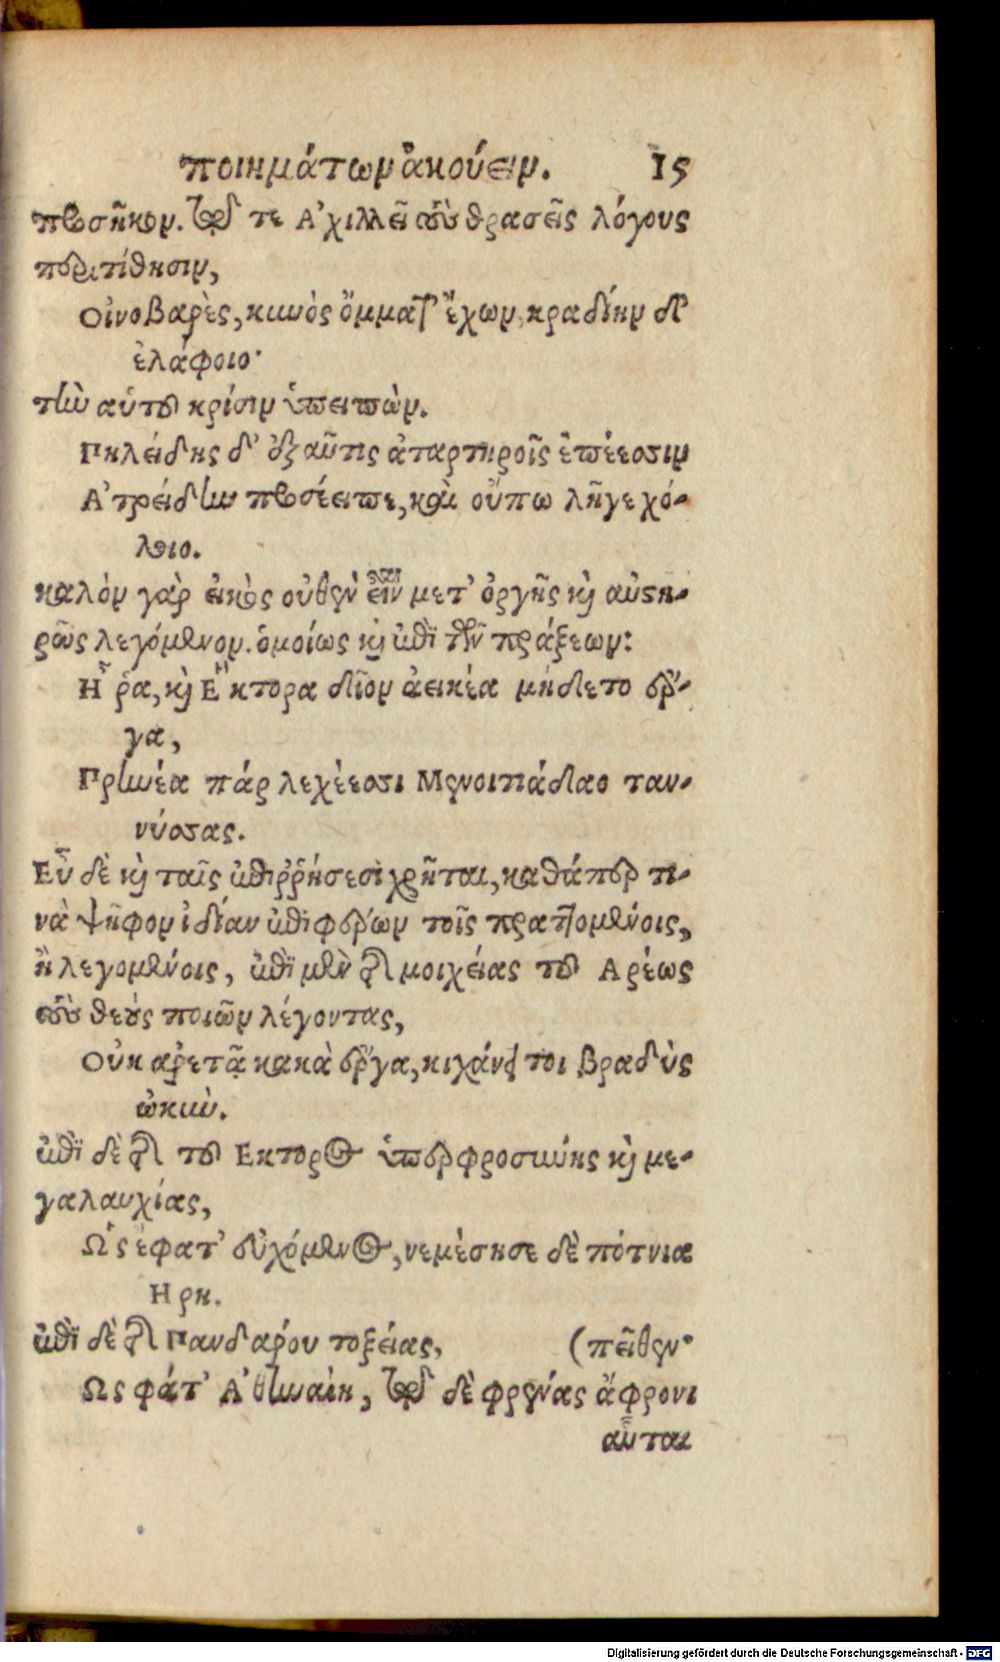 ποιημάτων ἀκούειν. 15
προσῆκον. τῷ τε Ἀχιλλεῖ τοὺς θρασεῖς λόγους
περιτίθησιν,
Οἰνοβαρὲς, κυνὸς ὄμματ' ἔχων, κραδίην δ'
ἐλάφοιο·
τὴν αὑτοῦ κρίσιν ὑπειπὼν.
Πηλείδης δ' ἐξαῦτις ἀταρτηροῖς ἐπέεσσιν
Ἀτρείδην προσέειπε, καὶ οὔπω λῆγε χό-
λοιο.
καλὸν γὰρ εἰκὸς οὐθὲν εἶναι μετ' ὀργῆς καὶ αὐστη-
ρῶς λεγόμενον. ὁμοίως καὶ ἐπὶ τῶν πράξεων:
Ἦ ῥα, καὶ Ἕκτορα δῖον ἀεικέα μήδετο ἔρ-
γα,
Πρηνέα πάρ λεχέεσσι Μενοιτιάδαο ταν-
νύσσας.
Εὖ δὲ καὶ ταῖς ἐπιρρήσεσι χρῆται, καθάπερ τι-
νὰ ψῆφον ἰδίαν ἐπιφέρων τοῖς πραττομένοις,
ἢ λεγομένοις, ἐπὶ μὲν τῆς μοιχείας τοῦ Αρέως
τοὺς θεοὺς ποιῶν λέγοντας,
Οὐκ ἀρετᾷ κακὰ ἔργα, κιχάνει τοι βραδὺς
ὠκύν.
ἐπὶ δὲ τῆς τοῦ Εκτορος ὑπερφροσύνης καὶ με-
γαλαυχίας,
Ὣς ἔφατ' εὐχόμενος, νεμέσησε δὲ πότνια
Ηρη.
ἐπὶ δὲ τῆς Πανδάρου τοξείας, (πεῖθεν·
Ως φάτ' Ἀθηναίη, τῷ δὲ φρένας ἄφρονι
αὗται
Digitalisierung gefördert durch die Deutsche Forschungsgemeinschaft - DFG